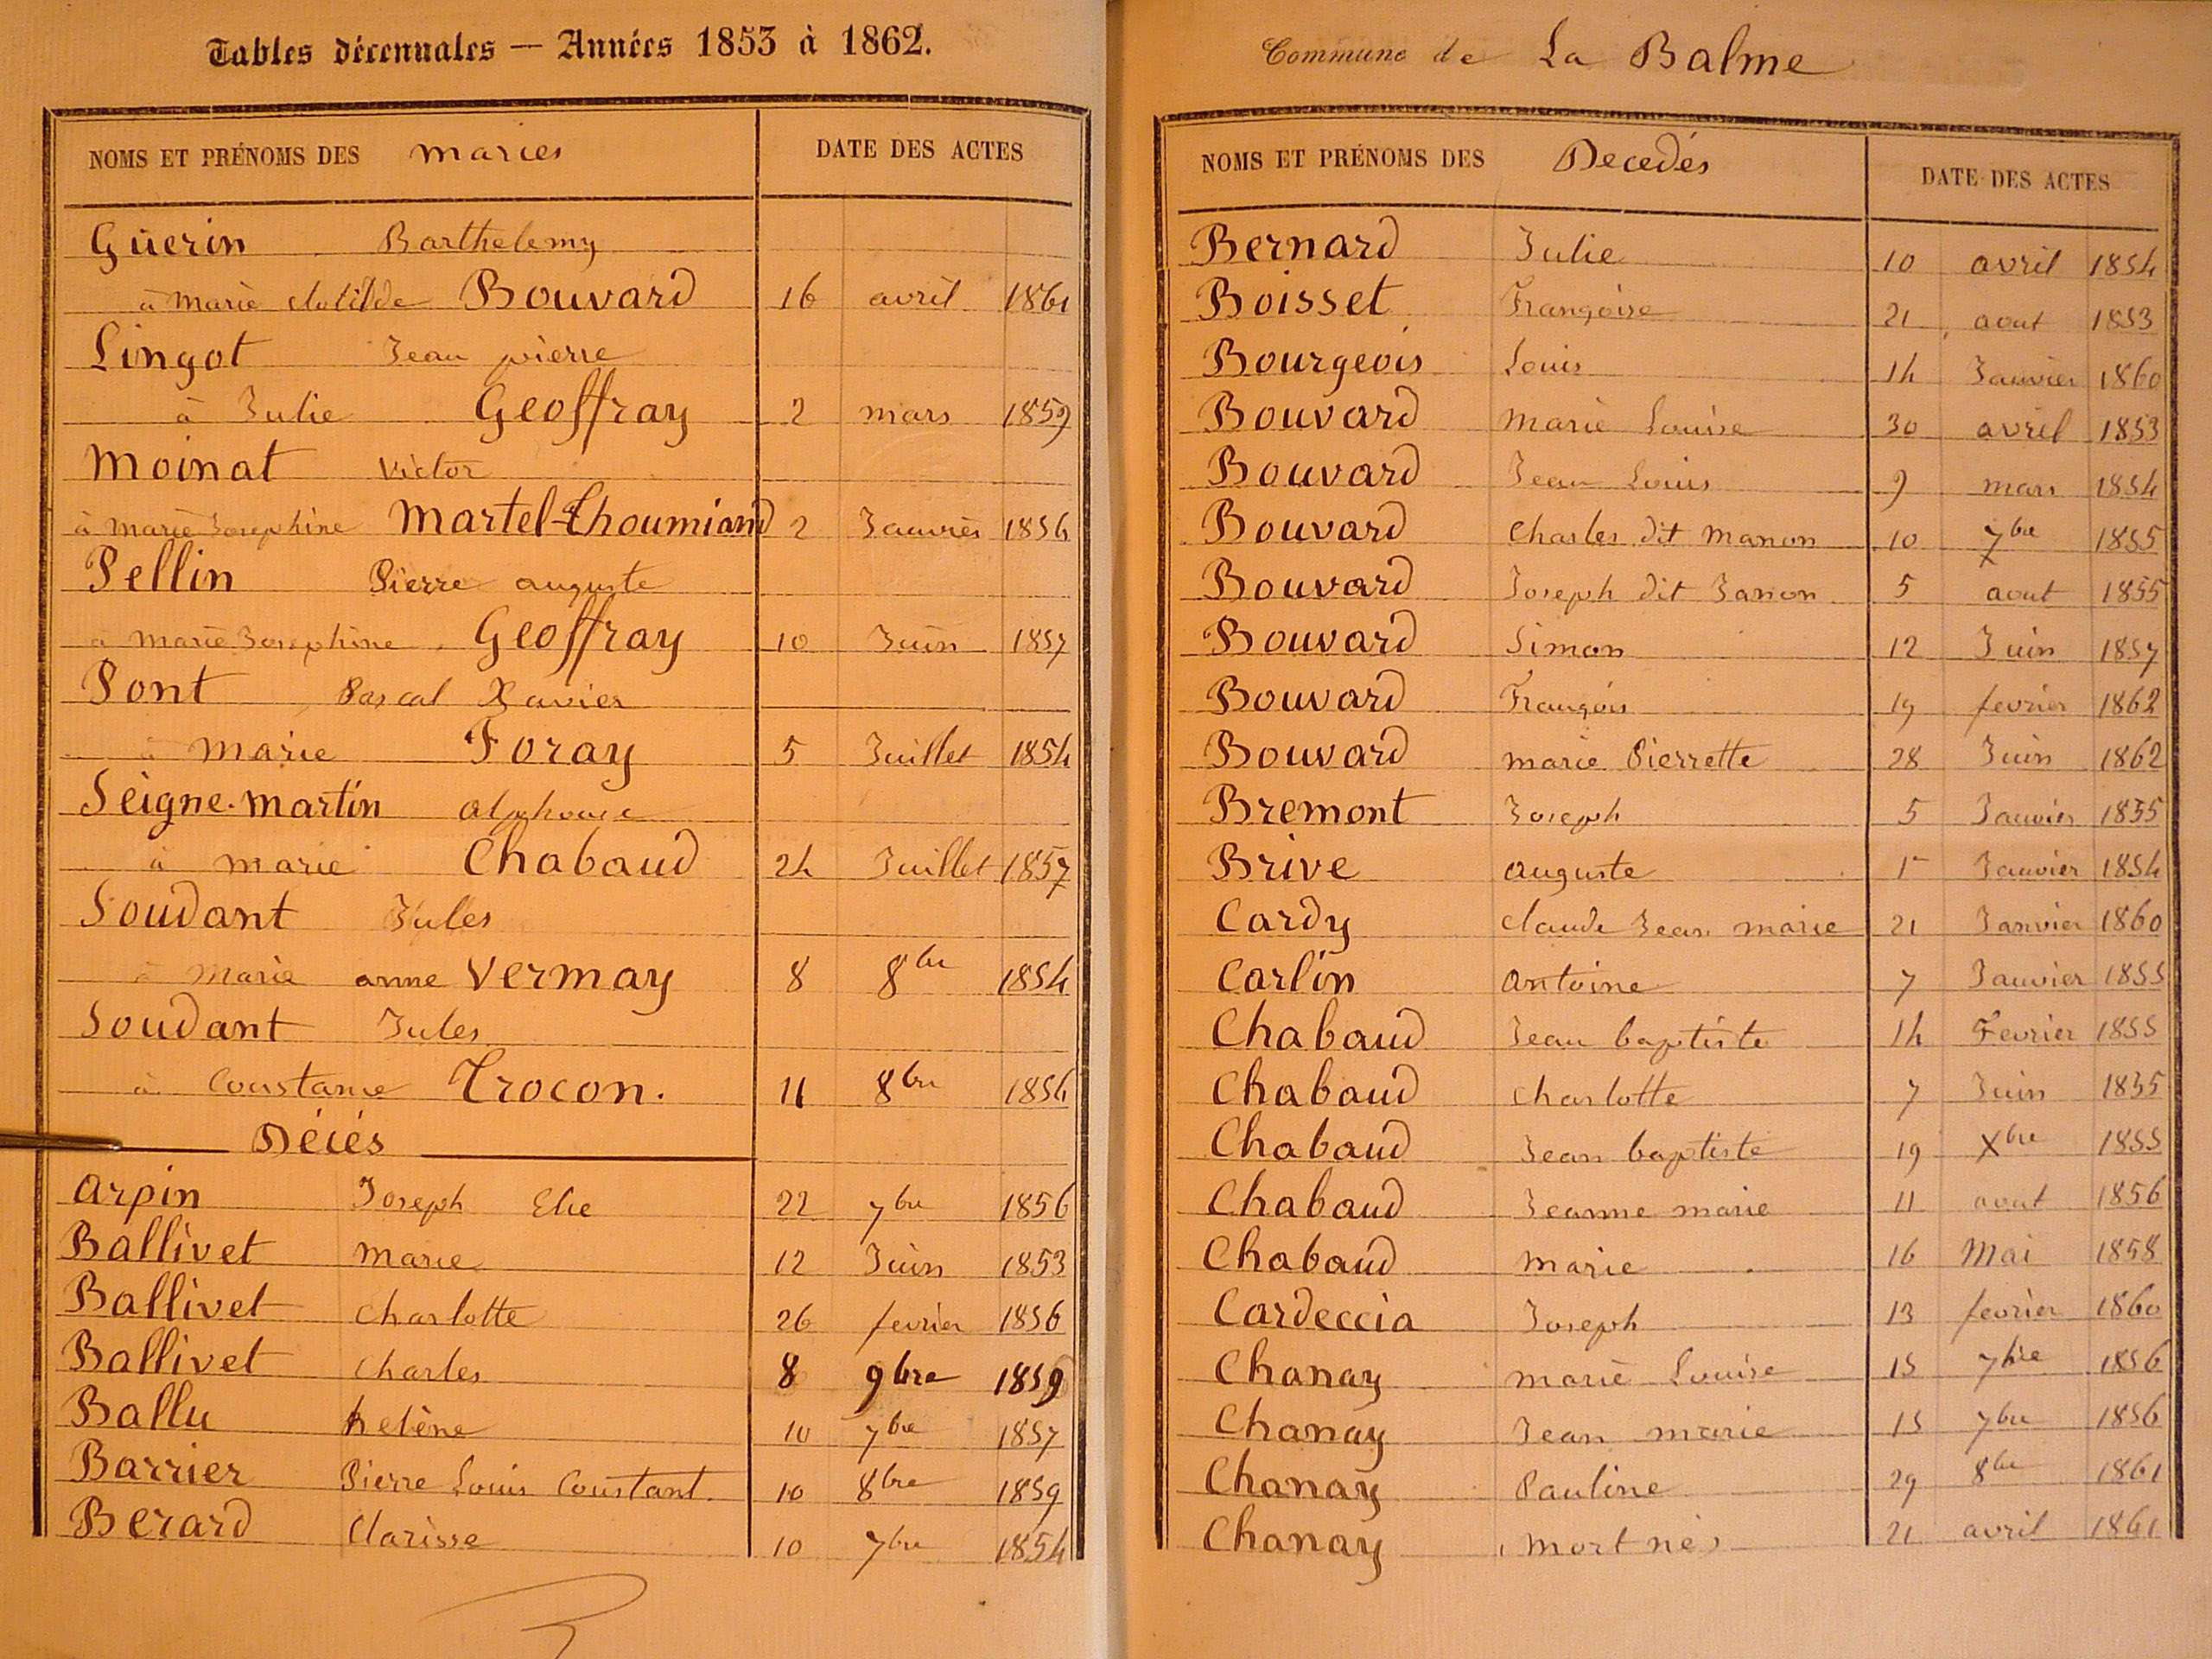 Tables décennales — Années 1853 à 1862.
NOMS ET PRÉNOMS DES maries DATE DES ACTES
Guerin Barthelemy
à Marie clotilde Bouvard 16 avril 1861
Lingot Jean pierre
à Julie Geoffray 2 mars 1859
Moinat victor
à marie Josephine Martel-Thoumiand 2 Janvier 1856
Pellin Pierre auguste
a marie Josephine Geoffray 10 Juin 1857
Pont Pascal Xavier
à marie Foray 5 Juillet 1854
Seigne-martin alphonse
à marie Chabaud 24 Juillet 1857
Soudant Jules
à marie anne Vermay 8 8bre 1854
Soudant Jules
à Constance Trocon. 11 8bre 1856
Décés
Arpin Joseph Elie 22 7bre 1856
Ballivet Marie 12 Juin 1853
Ballivet charlotte 26 fevrier 1856
Ballivet charles 8 9bre 1859
Ballu helène 10 7bre 1857
Barrier Pierre Louis Constant 10 8bre 1859
Berard Clarisse 10 7bre 1854
Commune de La Balme
NOMS ET PRÉNOMS DES Decedés DATE DES ACTES
Bernard Julie 10 avril 1854
Boisset Françoise 21 aout 1853
Bourgeois Louis 14 Janvier 1860
Bouvard marie Louise 30 avril 1853
Bouvard Jean Louis 9 mars 1854
Bouvard Charles dit manon 10 7bre 1855
Bouvard Joseph dit Janon 5 aout 1855
Bouvard Simon 12 Juin 1857
Bouvard François 19 fevrier 1862
Bouvard marie Pierrette 28 Juin 1862
Bremont Joseph 5 Janvier 1855
Brive auguste 1r Janvier 1854
Cardy claude Jean marie 21 Janvier 1860
Carlin antoine 7 Janvier 1855
Chabaud Jean baptiste 14 Fevrier 1855
Chabaud charlotte 7 Juin 1855
Chabaud Jean baptiste 19 Xbre 1855
Chabaud Jeanne marie 11 aout 1856
Chabaud marie 16 Mai 1858
Cardeccia Joseph 13 fevrier 1860
Chanay marie Louise 15 7bre 1856
Chanay Jean marie 15 7bre 1856
Chanay Pauline 29 8bre 1861
Chanay (mort né) 21 avril 1861